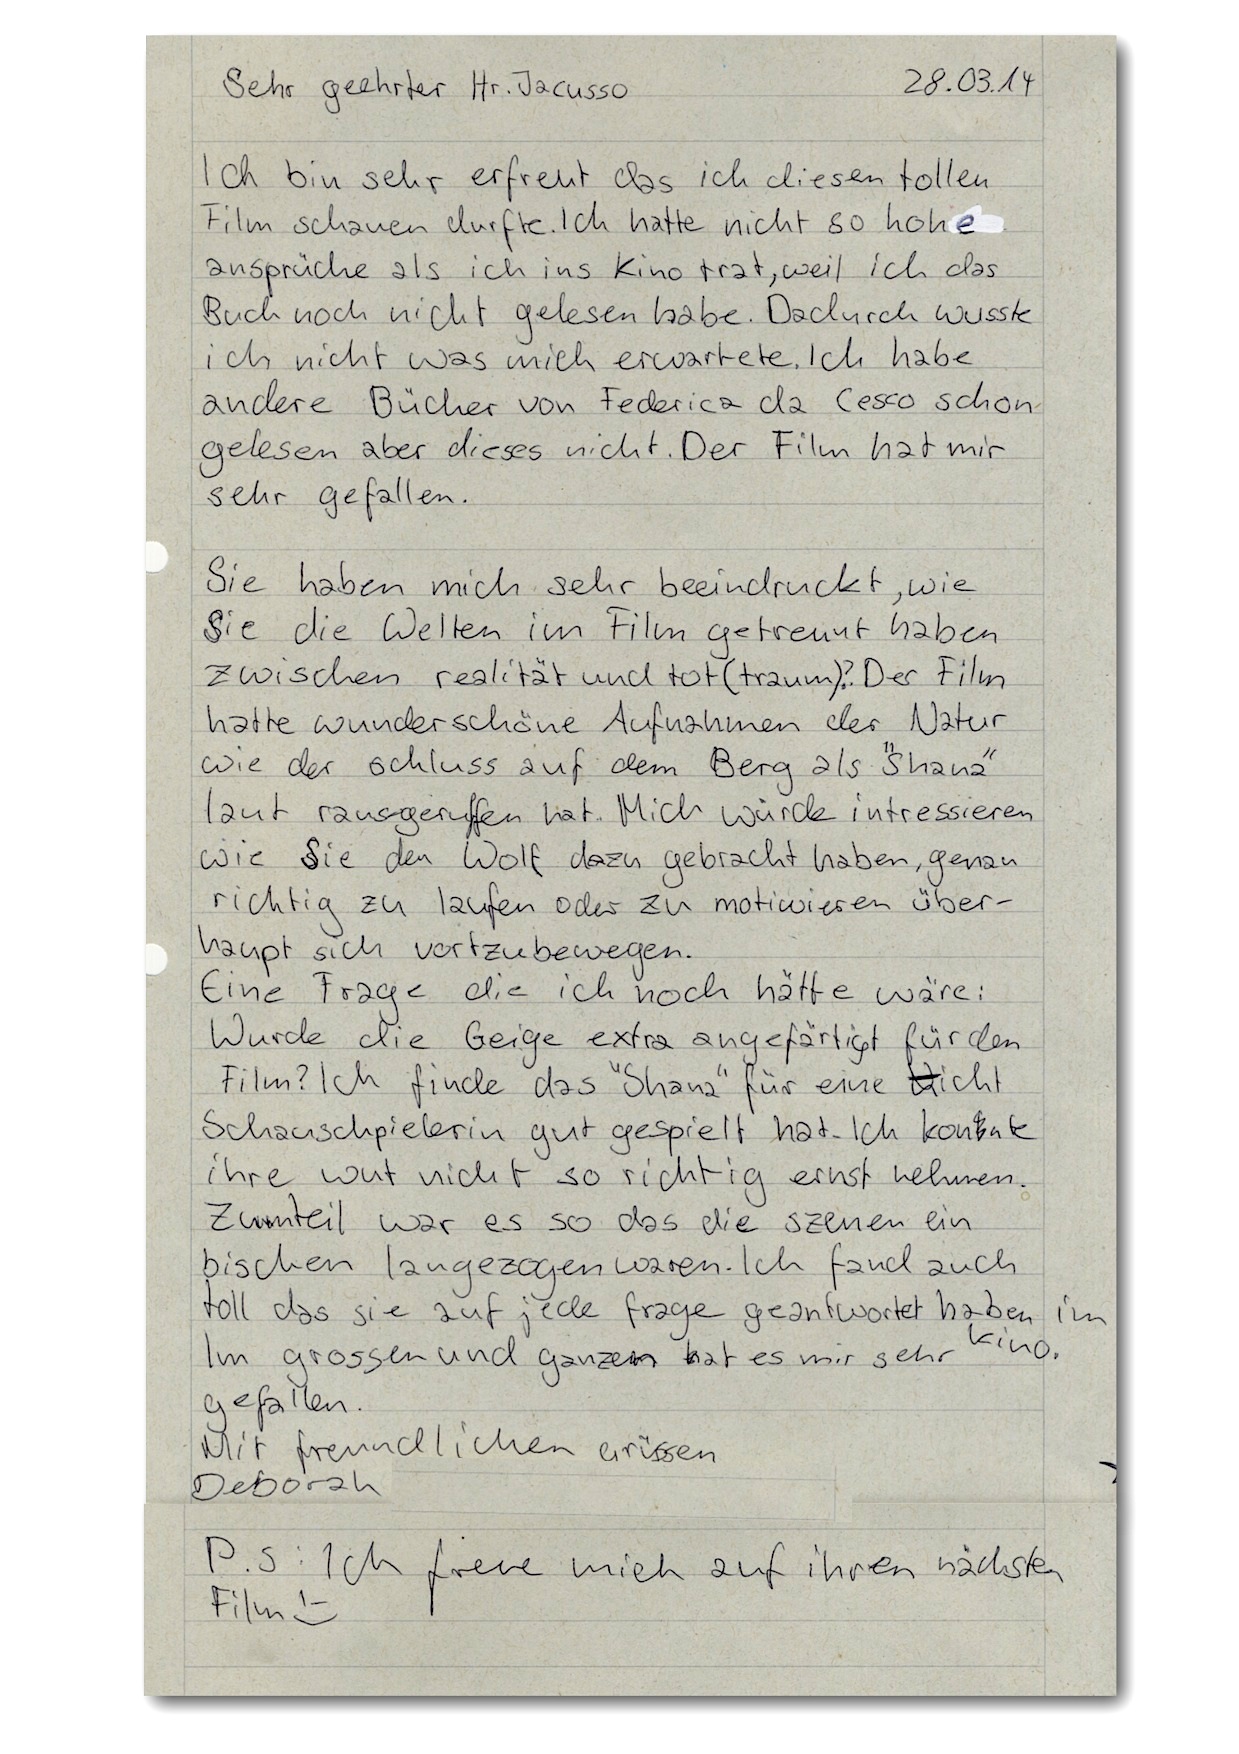 Sehr geehrter Hr. Jacusso 28.03.14
Ich bin sehr erfreut das ich diesen tollen
Film schauen durfte. Ich hatte nicht so hohe
ansprüche als ich ins Kino trat, weil ich das
Buch noch nicht gelesen habe. Dadurch wusste
ich nicht was mich erwartete. Ich habe
andere Bücher von Federica da Cesco schon
gelesen aber dieses nicht. Der Film hat mir
sehr gefallen.
Sie haben mich sehr beeindruckt, wie
Sie die Welten im Film getrennt haben
zwischen realität und tot (traum)? Der Film
hatte wunderschöne Aufnahmen der Natur
wie der schluss auf dem Berg als "Shana"
laut rausgeruffen hat. Mich würde intressieren
wie Sie den Wolf dazu gebracht haben, genau
richtig zu laufen oder zu motiwieren über-
haupt sich vortzubewegen.
Eine Frage die ich noch hätte wäre:
Wurde die Geige extra angefärtigt für den
Film? Ich finde das "Shana" für eine nicht
Schauschpielerin gut gespielt hat. Ich konnte
ihre wut nicht so richtig ernst nehmen.
Zumteil war es so das die szenen ein
bischen langezogen waren. Ich fand auch
toll das sie auf jede frage geantwortet haben im
kino.
Im grossen und ganzen hat es mir sehr
gefallen.
Mit freundlichen grüssen
Deborah
P.S: Ich freue mich auf ihren nächsten
Film !-)